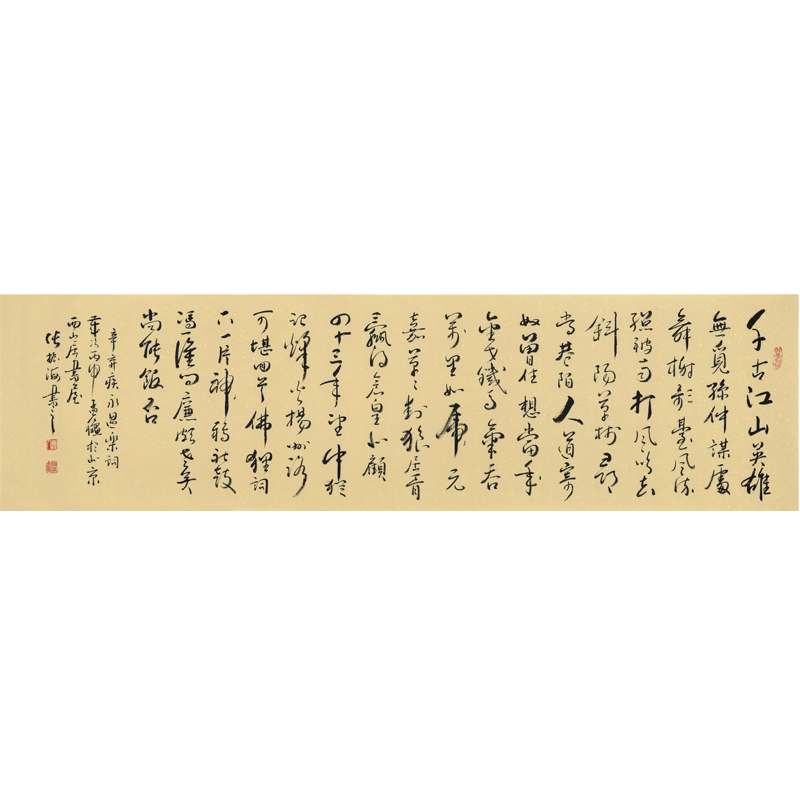 千古江山英雄
無覓孫仲謀處
舞榭歌臺風流
總被雨打風吹去
斜陽草樹尋
常巷陌人道寄
奴曾住想當年
金戈鐵馬氣吞
萬里如虎元
嘉草々封狼居胥
贏得倉皇北顧
四十三年望中猶
記烽火揚州路
可堪回首佛狸祠
下一片神鴉社鼓
馮誰問廉頗老矣
尚能飯否
辛弃疾永遇樂詞
歲次丙申孟穐於北京
西山居書屋
張振海書之